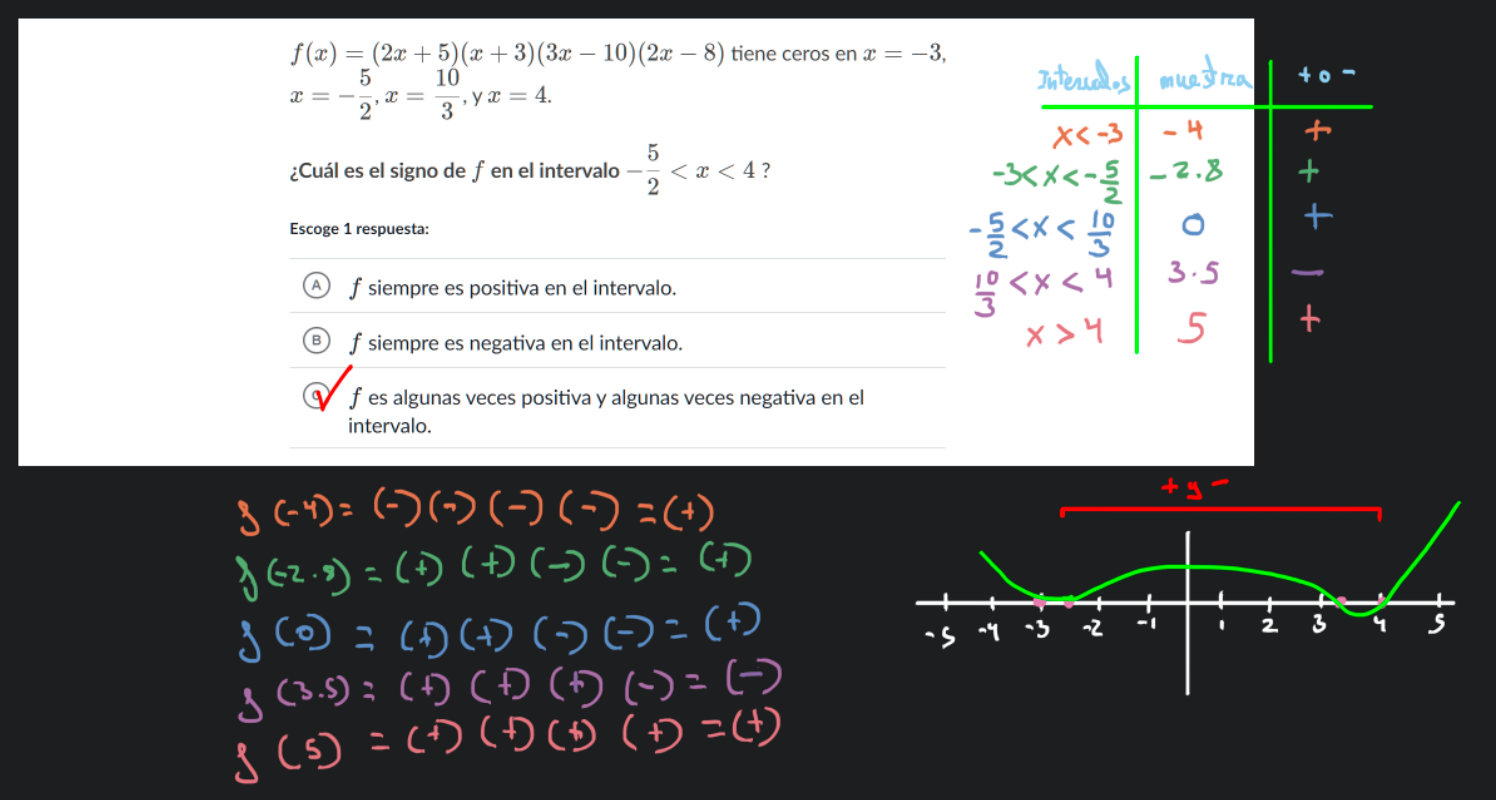 f(x) = (2x + 5)(x + 3)(3x − 10)(2x − 8) tiene ceros en x = −3,
x = −5/2, x = 10/3, y x = 4.
¿Cuál es el signo de f en el intervalo −5/2 < x < 4 ?
Escoge 1 respuesta:
A f siempre es positiva en el intervalo.
B f siempre es negativa en el intervalo.
f es algunas veces positiva y algunas veces negativa en el
intervalo.
Intervalos muestra + o -
x<-3 -4 +
-3<x<-5/2 -2.8 +
-5/2<x<10/3 0 +
10/3<x<4 3.5 -
x>4 5 +
f(-4)= (-)(-)(-)(-) =(+)
f(-2.8) = (+)(+)(-)(-)= (+)
f(0) = (+)(+)(-)(-)= (+)
f(3.5)= (+)(+)(+)(-)= (-)
f(5) = (+)(+)(+)(+) =(+)
+ y -
-5 -4 -3 -2 -1 1 2 3 4 5